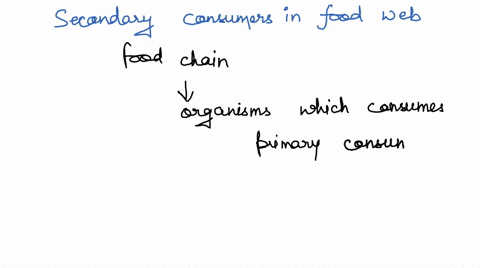 Secondary consumers in food web
food chain
organisms which consumes
primary consun